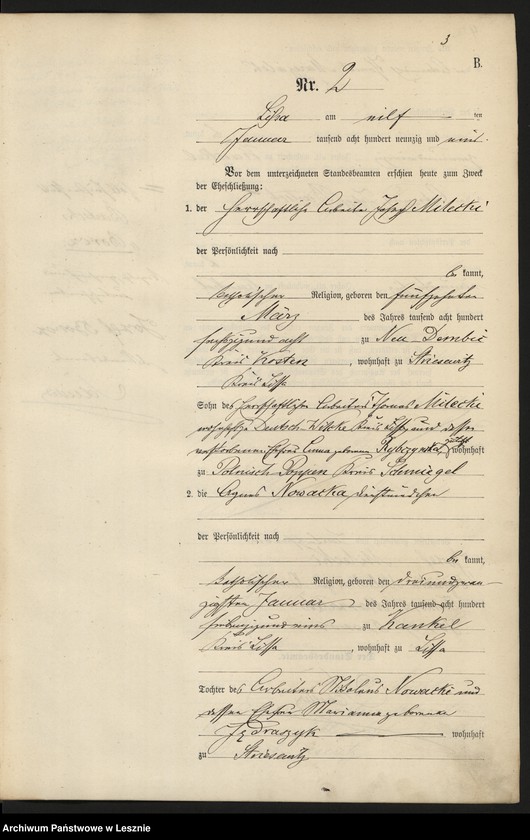 3
B.
Nr. 2
Lissa am elf ten
Januar tausend acht hundert neunzig und
Vor dem unterzeichneten Standesbeamten erschien heute zum Zweck
der Eheschließung:
1. der herrschaftliche Arbeiter Josef Milecki
der Persönlichkeit nach
be kannt,
katholischer Religion, geboren den fünfzehnten
März des Jahres tausend acht hundert
sechzig und acht zu Neu Dembic
Kreis Kosten, wohnhaft zu Striesewitz
Kreis Lissa
Sohn des herrschaftlichen Arbeiters Thomas Milecki
wohnhaft Deutsch Wilke Kreis Lissa und dessen
verstorbenen Ehefrau Anna geborene zuletzt wohnhaft
zu Polnisch Poppen Kreis Schmiegel
2. die Agnes Nowacka Dienstmädchen
der Persönlichkeit nach
be kannt,
katholischer Religion, geboren den dreiundzwan-
zigsten Januar des Jahres tausend acht hundert
siebenzig und eins zu Kankel
Kreis Lissa, wohnhaft zu Lissa
Tochter des Arbeiters Nowacki und
dessen Ehefrau Marianna geborene
Jędraszyk wohnhaft
zu Striesewitz
Archiwum Państwowe w Lesznie